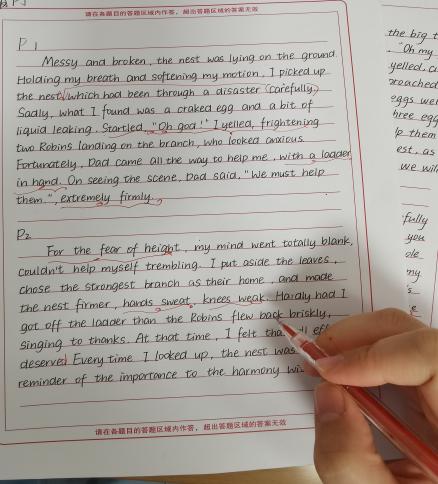 请在各题目的答题区域内作答，超出答题区域的答案无效
P1
Messy and broken, the nest was lying on the ground.
Holding my breath and softening my motion, I picked up
the nest, which had been through a disaster (carefully)
Sadly, what I found was a craked egg and a bit of
liquid leaking. Startled, "Oh god!" I yelled, frightening
two Robins landing on the branch, who looked anxious.
Fortunately, Dad came all the way to help me, with a ladder
in hand. On seeing the scene, Dad said, "We must help
them.", extremely firmly.
P2
For the fear of height, my mind went totally blank,
couldn't help myself trembling. I put aside the leaves,
chose the strongest branch as their home, and made
the nest firmer, hands sweat, knees weak. Hardly had I
got off the ladder than the Robins flew back briskly,
singing to thanks. At that time, I felt
deserved Every time I looked up, the nest was
reminder of the importance to the harmony
请在各题目的答题区域内作答，超出答题区域的答案无效
the big
"Oh my
yelled,
eggs
egg
them
est, as
we
fully
you
my